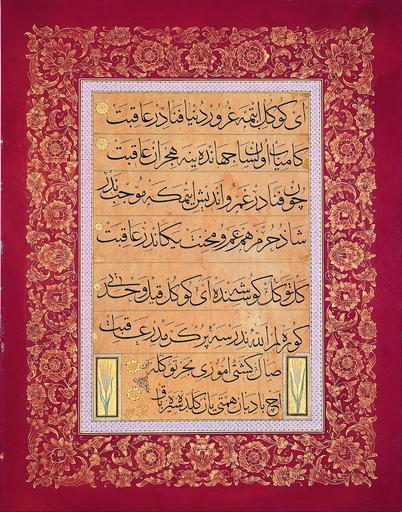 ای کوکل ایتمه غرور دنیا فنادر عاقبت
کامیاب اولسان جهانده ینه هجران عاقبت
چون فنادر غم و اندیش ایتمکه موجب ندر
شاد خرم هم غم و محنت یکاندر عاقبت
کل توکل کوشه سنده ای کوکل قیل وحدتی
کوره لم الله عاقبت
صال کشتئ اموری بحر توکله
اچ بادبان همتی یان کلده سیره باق